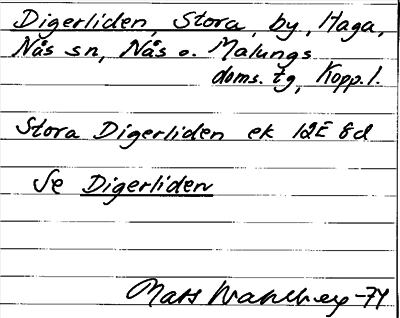 Digerliden, Stora, by, Haga,
Nås sn, Nås o. Malungs
doms. tg, Kopp. l.
Stora Digerliden ek 12E 8d
Se Digerliden
Mats Wahlberg -74